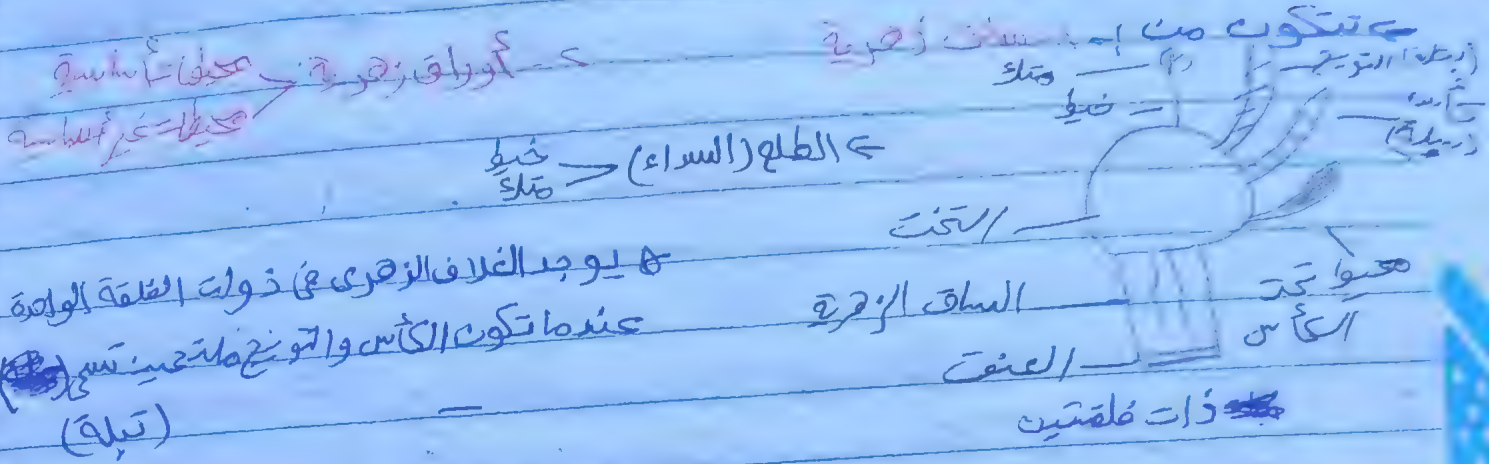 تتكون من :- ساق زهرية
٢- أوراق زهرية
محيطات أساسية
محيطات غير أساسية
متك
خيط
التويج
الطلع (السداء)
خيط
متك
التخت
الساق الزهرية
العنق
تحت
الكأس
ذات فلقتين
يوجد الغلاف الزهرى فى ذوات الفلقة الواحدة
عندما تكون الكأس والتويج ملتحمين تسمى
(تبلة)